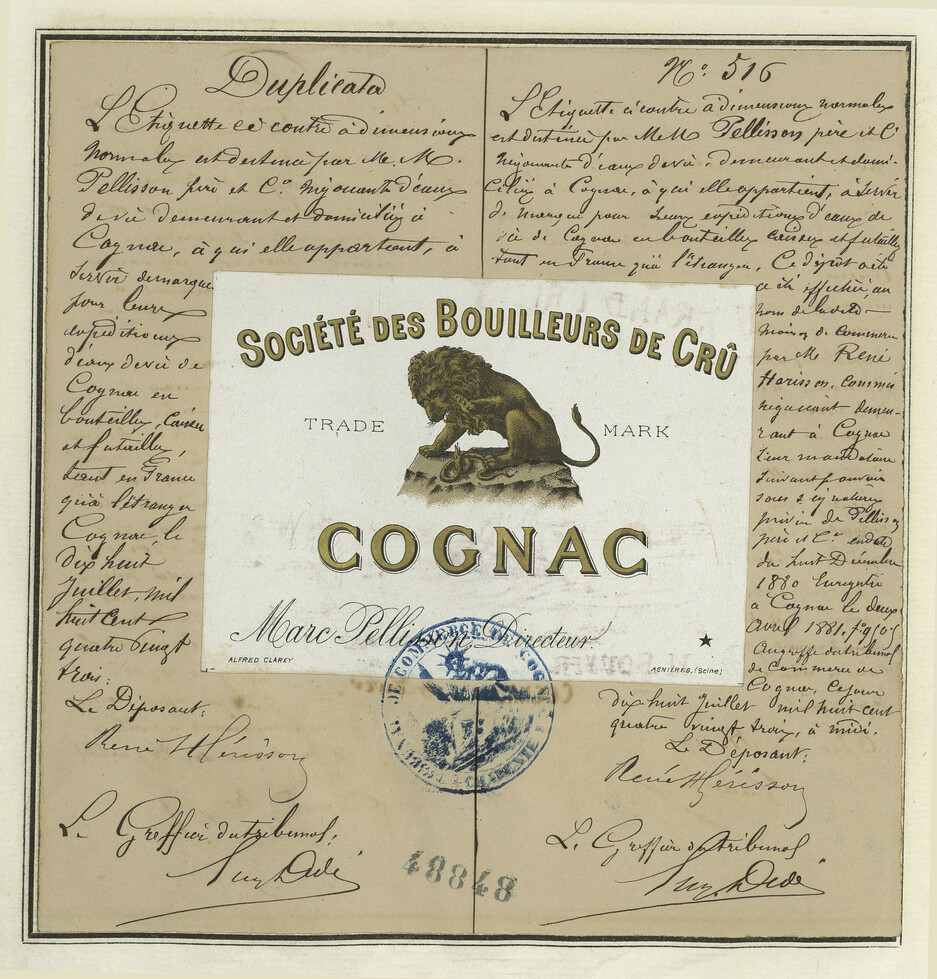 Duplicata
L'Etiquette ci contre à dimensions
normales est destinée par M. M.
Pellisson père et Cie Négociants d'eaux
de vie demeurant et domiciliés à
Cognac, à qui elle appartient, à
servir de marque
pour leurs
expéditions
d'eaux de vie de
Cognac en
bouteilles, caisses
et futailles,
tant en France
qu'à l'étranger
Cognac, le
dix huit
Juillet, mil
huit cent
quatre vingt
trois.
Le Déposant:
René Hérisson
Le Greffier du tribunal,
No. 516
L'Etiquette ci contre à dimensions normales
est destinée par M. M. Pellisson père et Cie
Négociants d'eaux de vie, demeurant et domi-
ciliés à Cognac, à qui elle appartient, à servir
de marque pour leurs expéditions d'eaux de
vie de Cognac en bouteilles caisses et futailles
tant en France qu'à l'étranger. Ce dépôt a été
a été effectué, au
nom de la dite
maison de commerce
par M. René
Herisson, commis
négociant demeu-
rant à Cognac
leur mandataire
suivant pouvoir
sous signature
privée de Pellisson
père et Cie en date
du huit Décembre
1880 Enregistré
à Cognac le deux
Avril 1881, fo
Au greffe du tribunal
de Commerce de
Cognac, ce jour
dix huit Juillet mil huit cent
quatre vingt trois, à midi.
Le Déposant:
René Hérisson
Le Greffier du tribunal
SOCIÉTÉ DES BOUILLEURS DE CRÛ
TRADE MARK
COGNAC
Marc Pellisson, Directeur.
ALFRED CLAREY
ASNIÈRES, (Seine)
DE COMMERCE DE COGNAC
48848